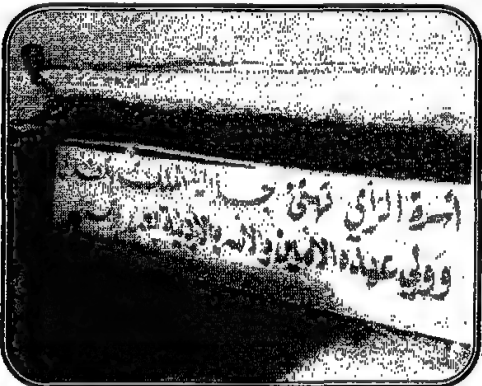 أسرة الرأي تهنئ جلالة الملك
وولي عهده الأمين والأسرة الأردنية